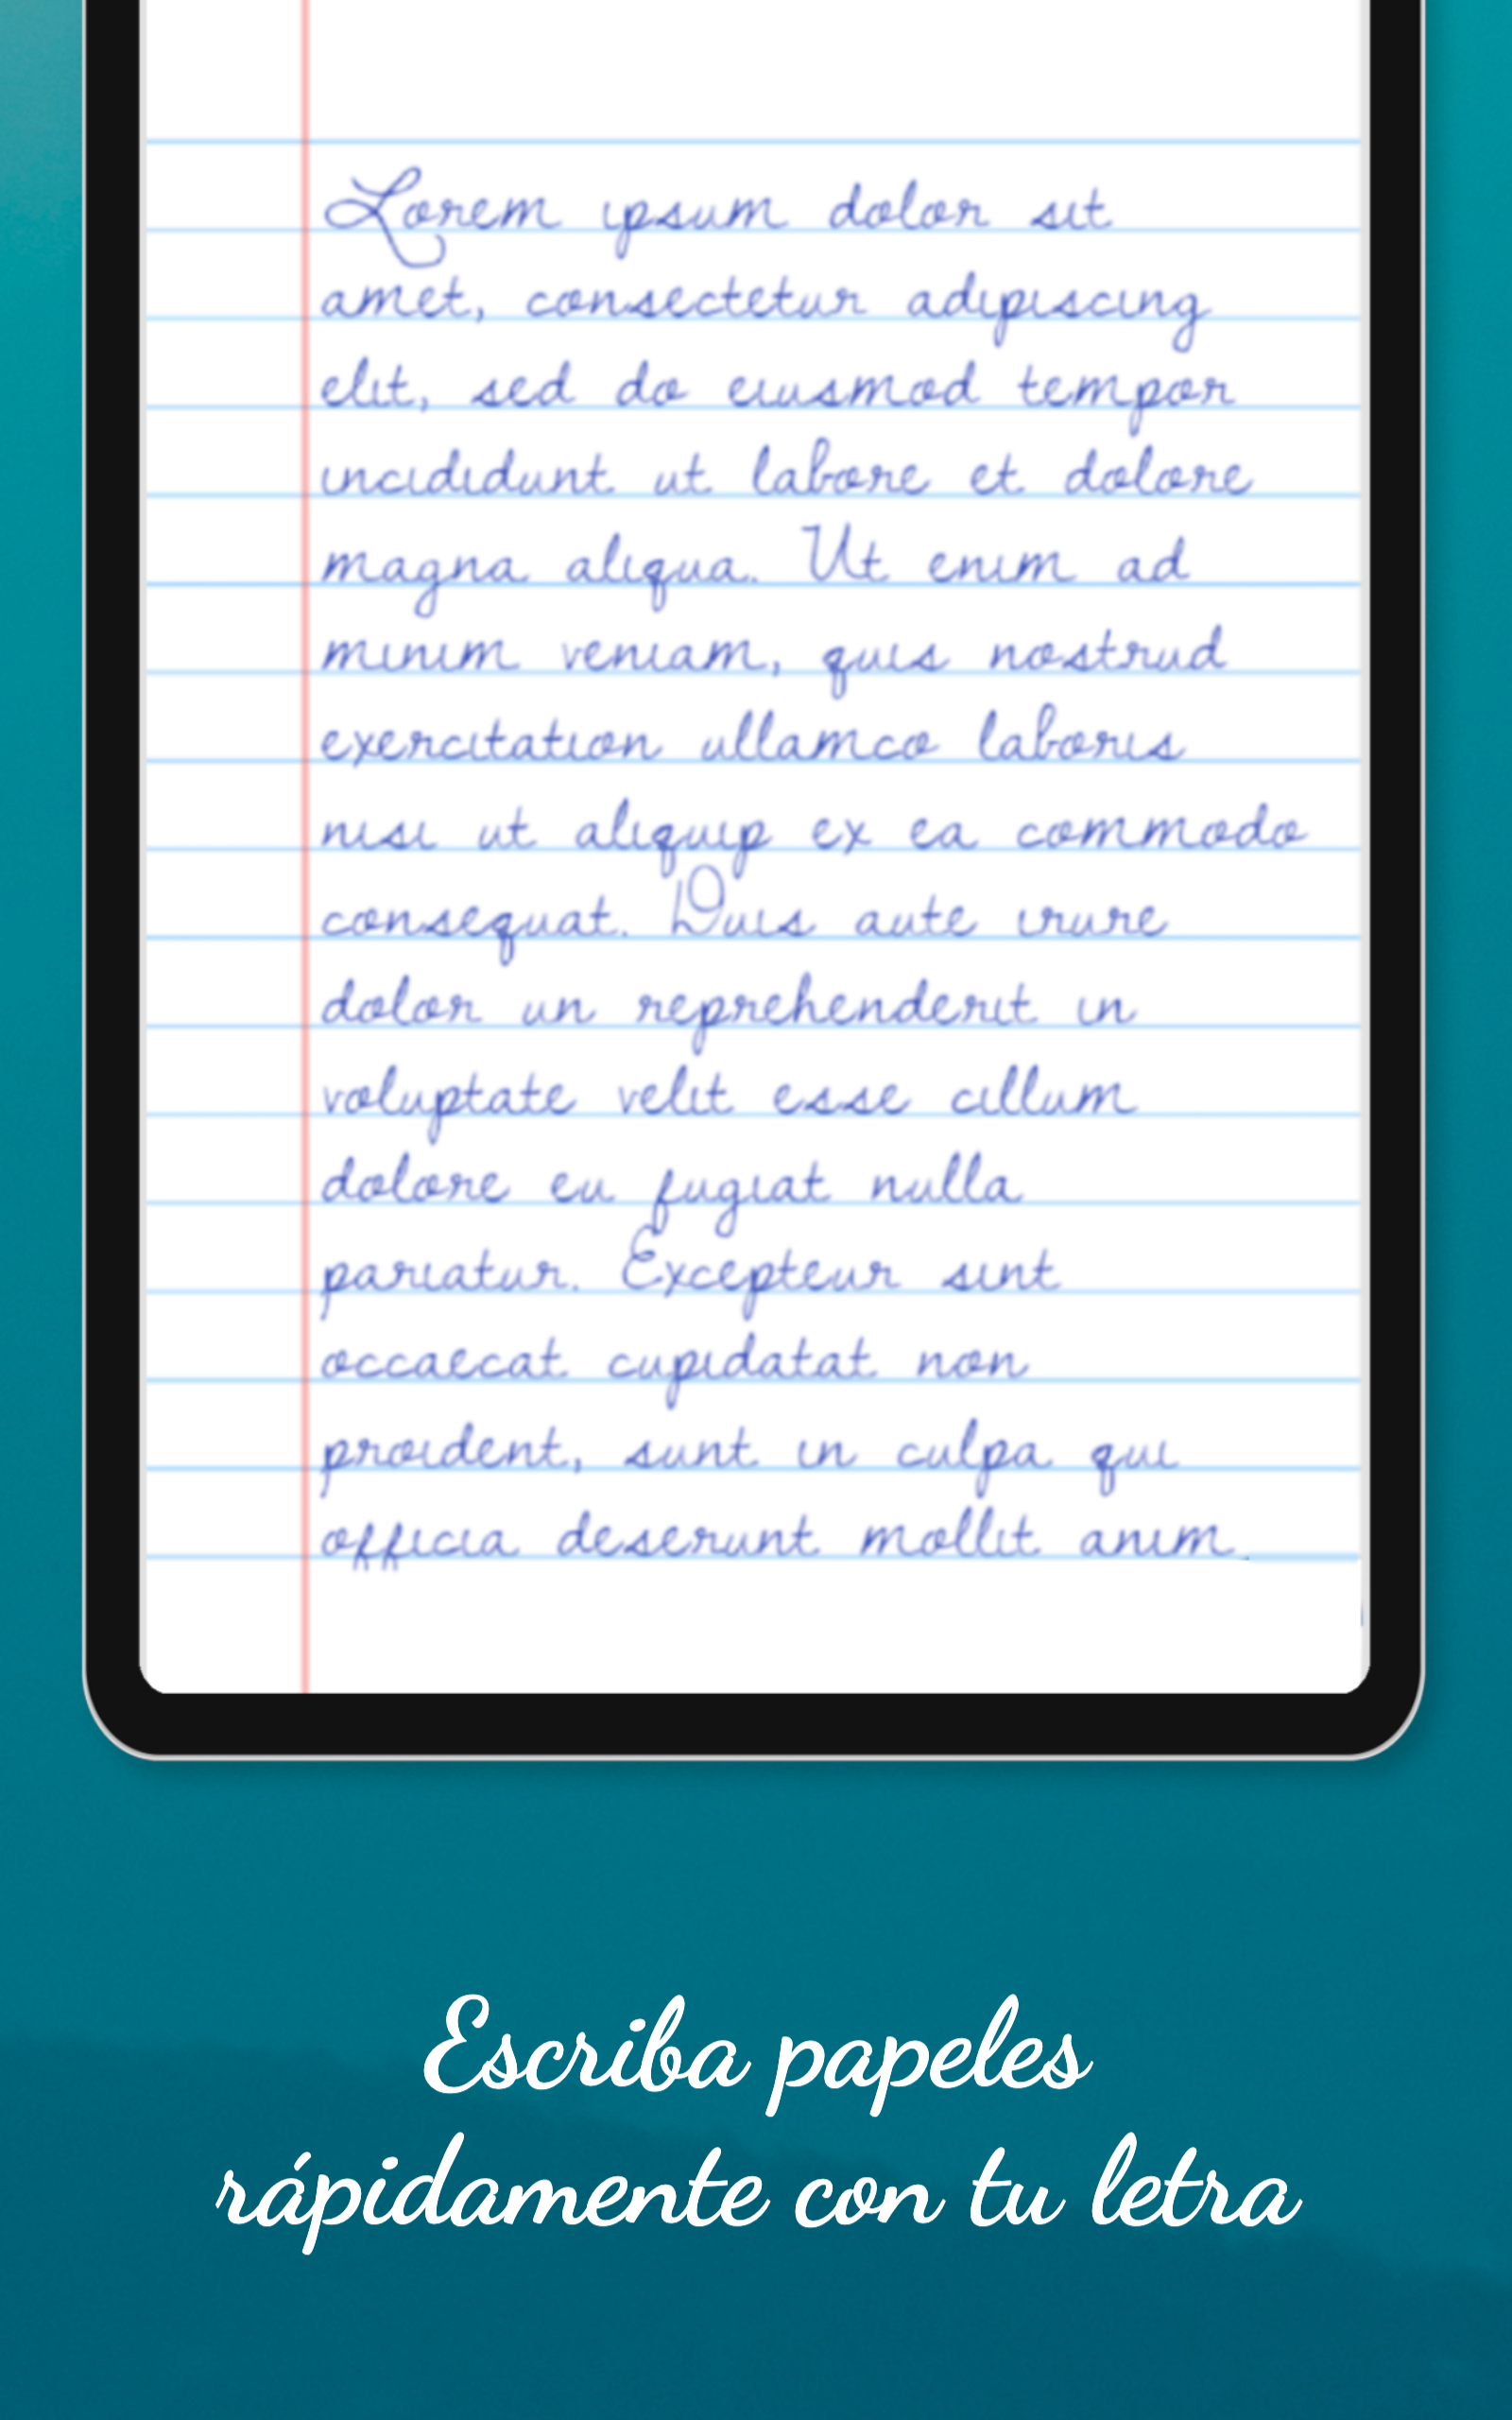 Lorem ipsum dolor sit
amet, consectetur adipiscing
elit, sed do eiusmod tempor
incididunt ut labore et dolore
magna aliqua. Ut enim ad
minim veniam, quis nostrud
exercitation ullamco laboris
nisi ut aliquip ex ea commodo
consequat. Duis aute irure
dolor in reprehenderit in
voluptate velit esse cillum
dolore eu fugiat nulla
pariatur. Excepteur sint
occaecat cupidatat non
proident, sunt in culpa qui
officia deserunt mollit anim
Escriba papeles
rápidamente con tu letra